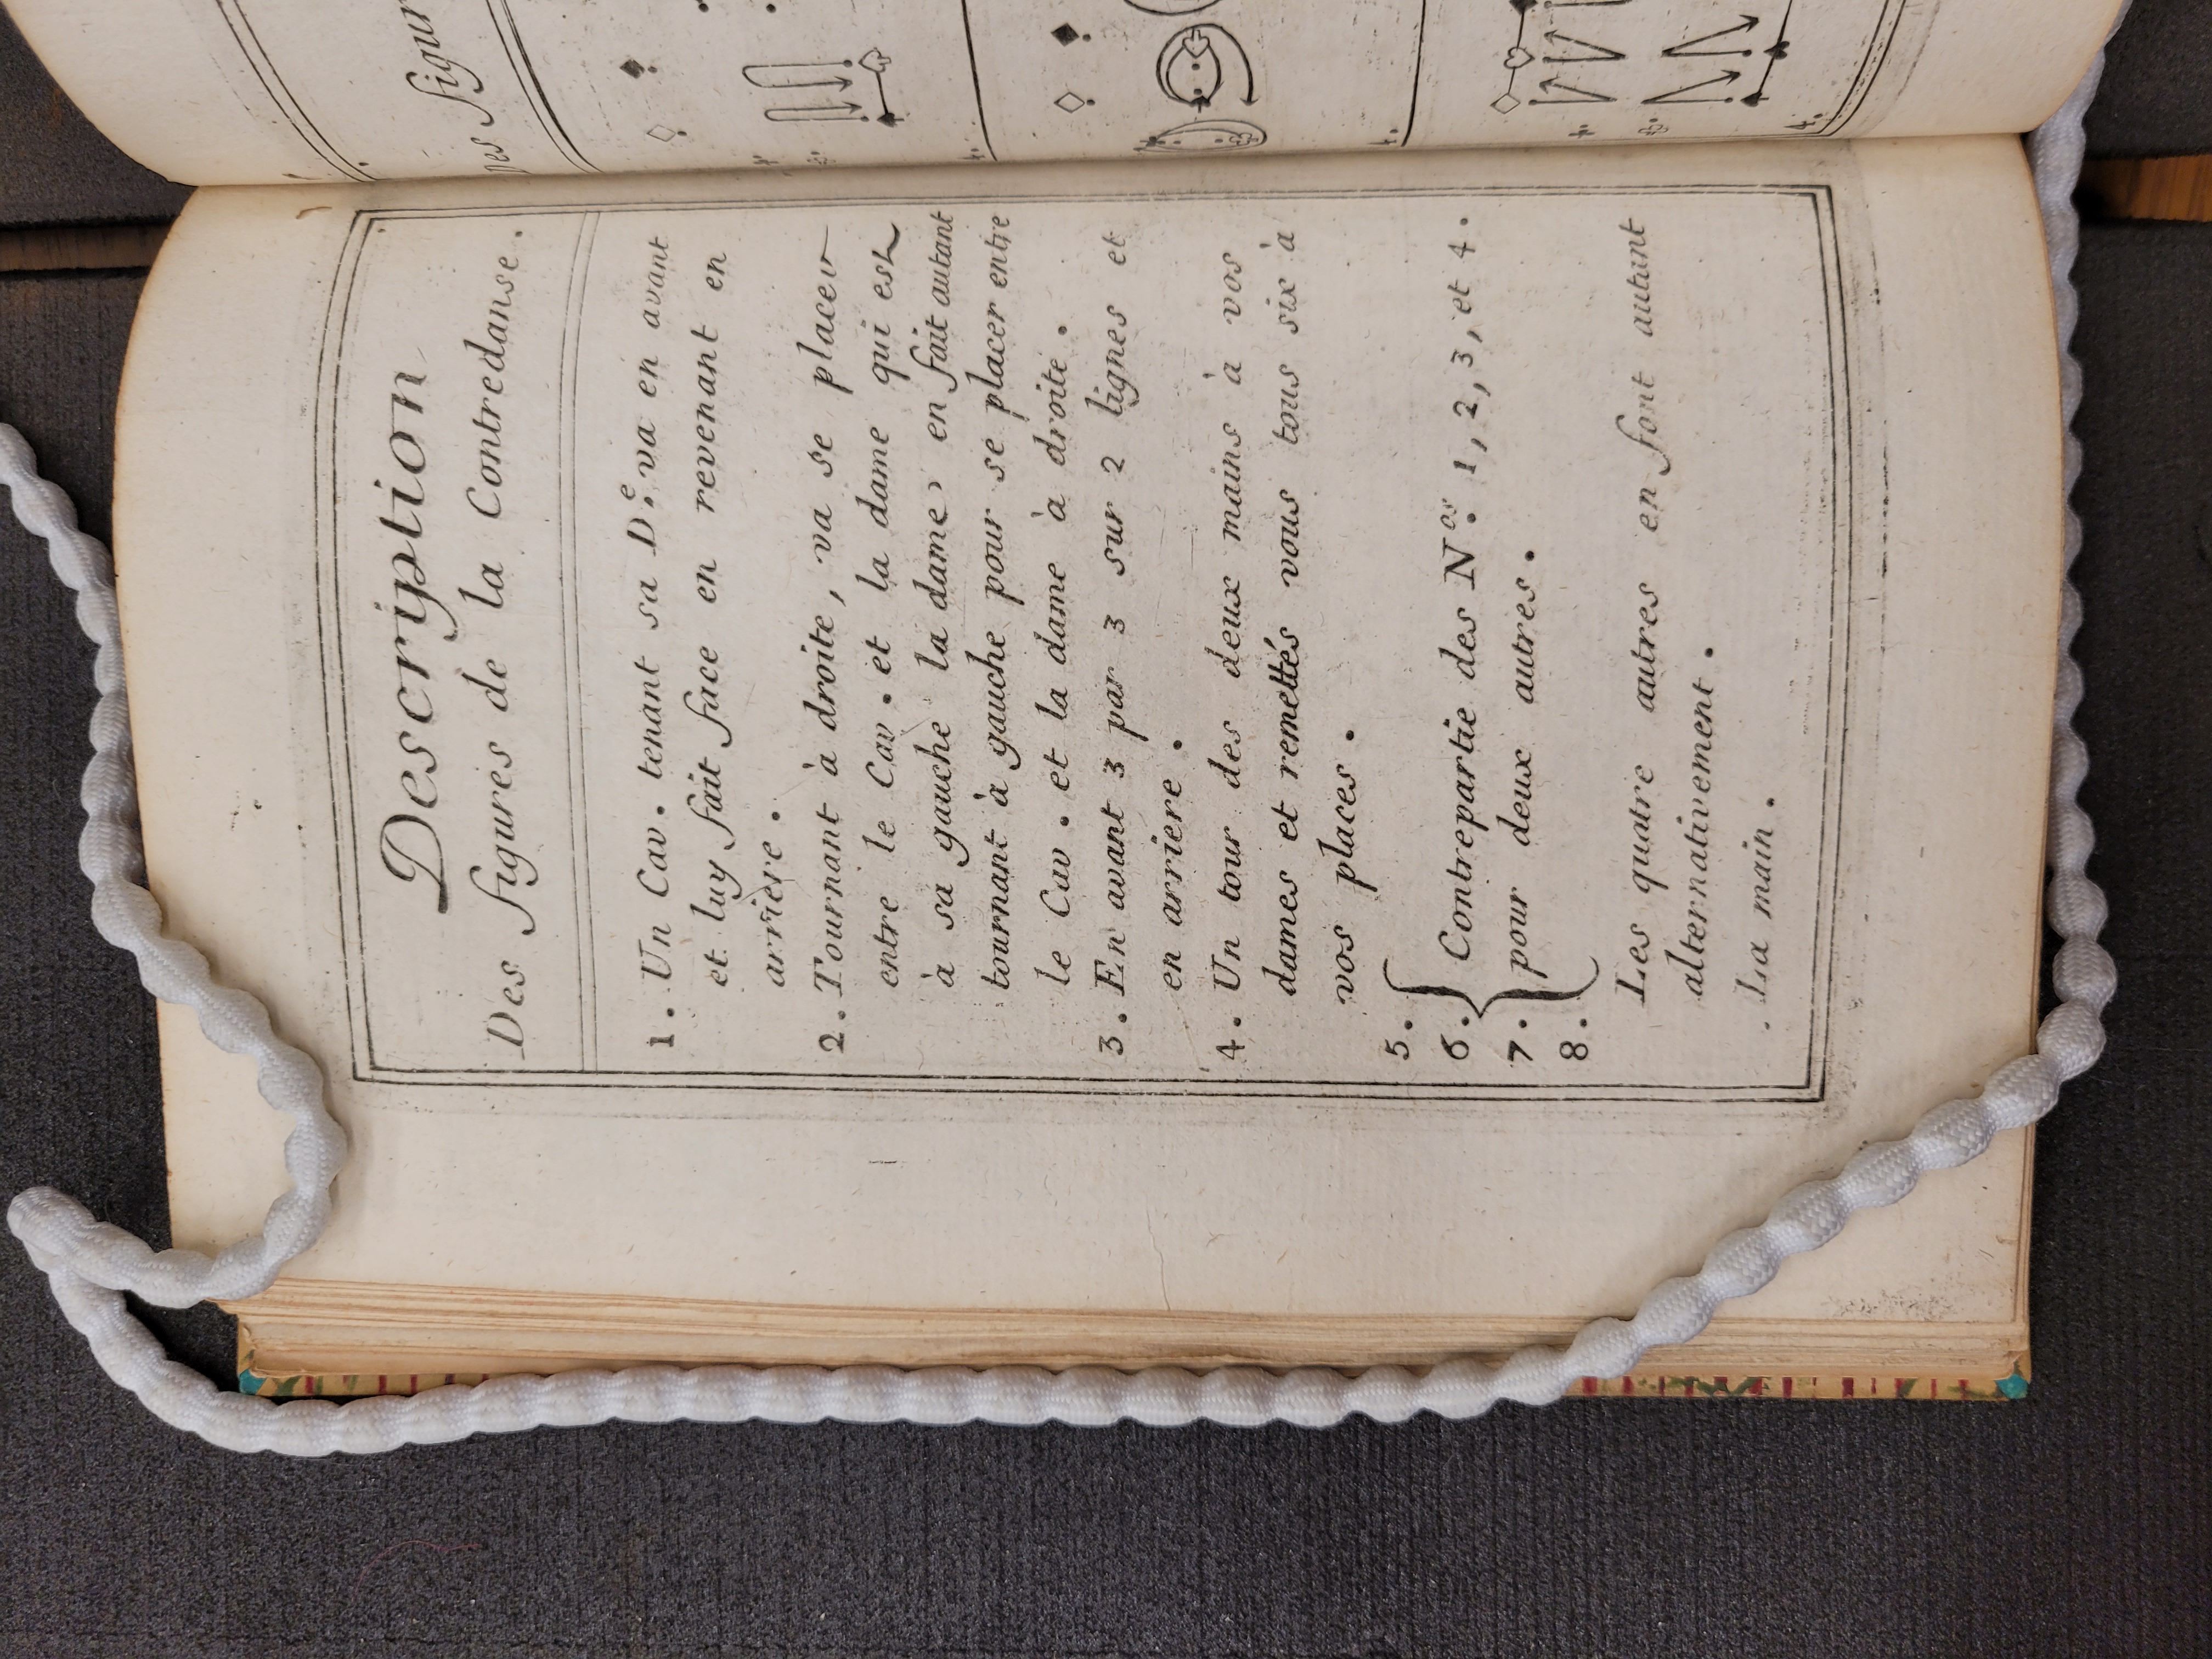 Description
Des figures de la Contredanse.
1. Un Cav. tenant sa D.e va en avant
et luy fait face en revenant en
arriere.
2. Tournant à droite, va se placer
entre le Cav. et la dame qui est
à sa gauche la dame en fait autant
tournant à gauche pour se placer entre
le Cav. et la dame à droite.
3. En avant 3 par 3 sur 2 lignes et
en arriere.
4. Un tour des deux mains à vos
dames et remettés vous tous six à
vos places.
5.
6. Contrepartie des N.os 1, 2, 3, et 4.
7. pour deux autres.
8.
Les quatre autres en font autant
alternativement.
. La main.
Des figur